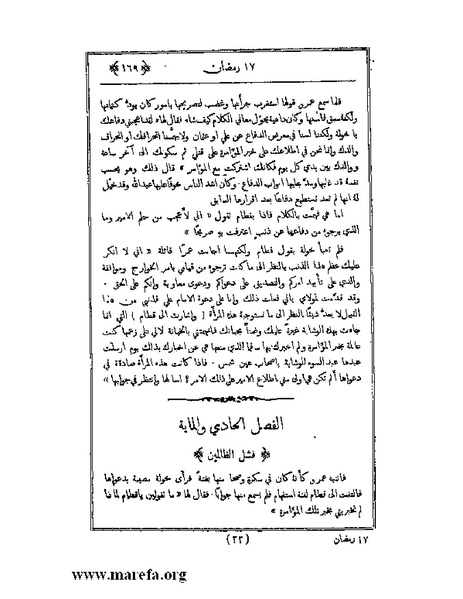 ﴿١٦٩﴾ ١٧ رمضان
فلما سمع عمرو قولها استغرب جرأتها وغضب لتصريحها بامور كان يود كتمانها
ولكنه سبق فاتهمها وكان داهية يحول معاني الكلام كيف شاء فقال لها « لقد اعجبني دفاعك
يا خولة ولكننا لسنا في معرض الدفاع عن علي او عثمان ولا يهمنا انحرافك او انحراف
والدك وانما نحن في اطلاعك على خبر المؤامرة على قتلي ثم سكوتك الى آخر ساعة
ووالدك بين يدي كل يوم فكأنك اشتركت مع المؤامر » قال ذلك وهو يحسب
نفسه قد غلبها وسد عليها ابواب الدفاع . وكان اشد الناس خوفا عليها عبدالله وقد خيل
له انها لم تعد تستطيع دفاعا بعد اقرارها السابق
اما هي فهمت بالكلام فاذا بقطام تقول « اني لاعجب من حلم الامير وما
الذي يرجوه من دفاعها عن ذنب اعترفت به صريحا »
فلم تعبأ خولة بقول قطام ولكنها اجابت عمرا قائلة « اني لا انكر
عليك عظم هذا الذنب بالنظر الى ما كنت ترجوه من قيامي بامر الخوارج وموافقة
والدي على تأييد امركم والتصديق على دعواكم ودعوى معاوية وانكم على الحق .
وقد قدمت لمولاي باني فعلت ذلك وانا على دعوة الامام علي فذنبي من هذا
القبيل لا يعد شيئا بالنظر الى ما تستوجبه هذه المرأة ( واشارت الى قطام ) التي انما
جاءت بهذه الوشاية غيرة عليك وضنا بحياتك فاتهمتني بالخيانة لاني على زعمها كنت
عالمة بخبر المؤامرة ولم اخبرك بها . فما الذي منعها هي عن اخبارك بذلك يوم ارسلت
عبدها عبد السوء للوشاية باصحاب عين شمس . فاذا كانت هذه المرأة صادقة في
دعواها ألم تكن هي اولى مني اطلاع الامير على ذلك الامر؟ اسألها وانتظر في جوابها »
الفصل الحادي والماية
﴿ فشل الظالمين ﴾
فانتبه عمرو كأنه كان في سكرة وصحا منها بغتة فرأى خولة مصيبة بدعواها
فالتفت الى قطام لفتة استفهام فلم يسمع منها جوابا . فقال لها « ما تقولين يا قطام لماذا
لم تخبريني بخبر تلك المؤامرة »
١٧ رمضان (٢٢)
www.marefa.org